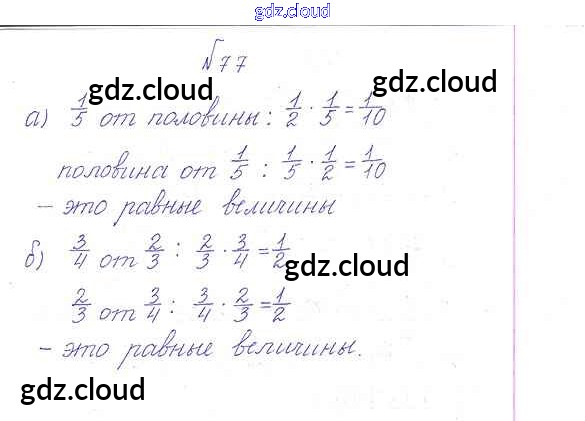 gdz.cloud
№77
gdz.cloud gdz.cloud
а) 1/5 от половины: 1/2 · 1/5 = 1/10
половина от 1/5 : 1/5 · 1/2 = 1/10
– это равные величины
б) 3/4 от 2/3 : 2/3 · 3/4 = 1/2
gdz.cloud
2/3 от 3/4 : 3/4 · 2/3 = 1/2
– это равные величины.
gdz.cloud